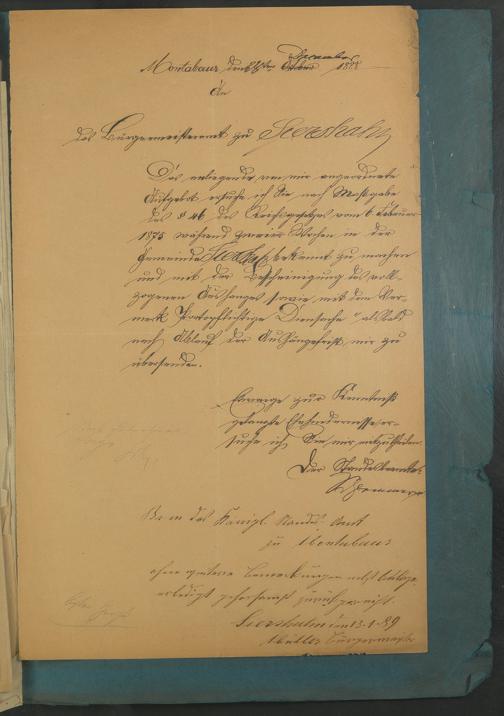 Montabaur, den 24ten December 1888
An
das Bürgermeisteramt zu Siershahn
Das anliegende, von mir angeordnete
Aufgebot ersuche ich Sie nach Maßgabe
des § 46 des Reichsgesetzes vom 6 Februar
1875 während zweier Wochen in der
Gemeinde Siershahn bekannt zu machen
und mit der Bescheinigung des voll-
zogenen Aushanges sowie mit dem Ver-
merk "Portopflichtige Dienstsache" alsbald
nach Ablauf der Aushängefrist mir zu
übersenden.
Etwaige zur Kenntniß
gelangte Ehehindernisse er-
suche ich Sie mir mitzutheilen.
Der Standesbeamte:
An das Königl. Standes-Amt
zu Montabaur
ohne weitere Bemerkungen nebst Anlage
erledigt gehorsamst zurückgereicht.
Siershahn den 13-1-89
Müller Bürgermeister